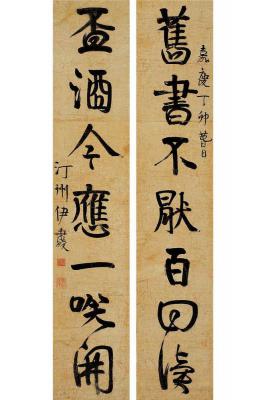 舊書不厭百回讀
嘉慶丁卯萅日
盃酒今應一咲開
汀州伊秉綬